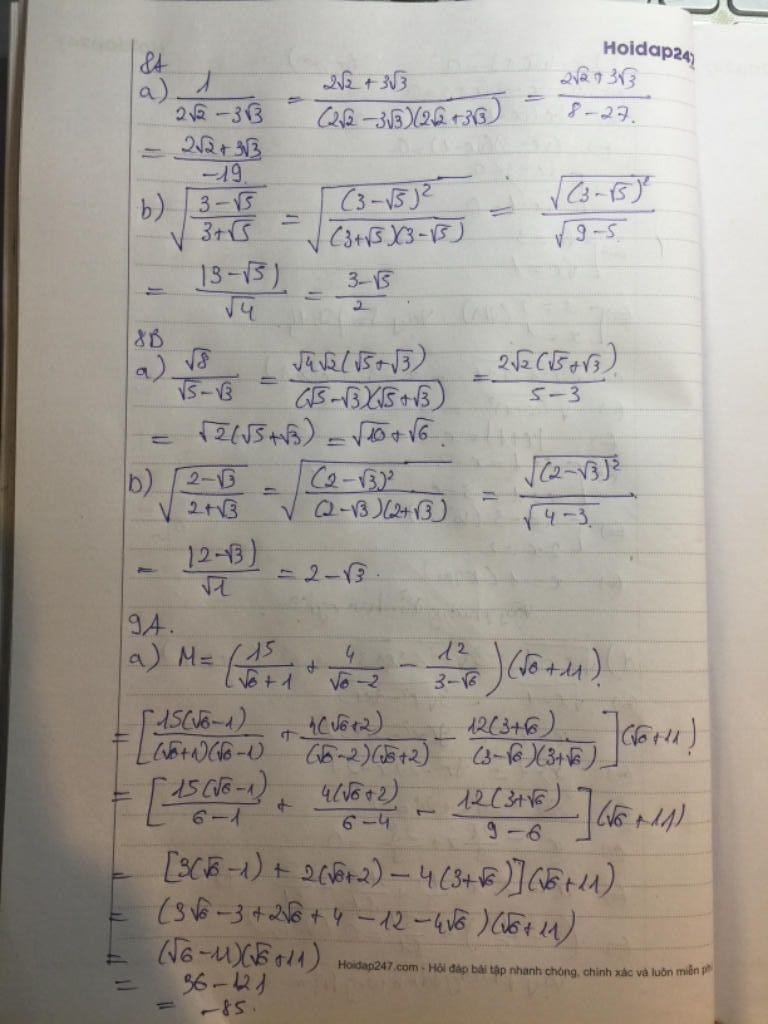 Hoidap247
8A
a) 1/(2√2 - 3√3) = (2√2 + 3√3)/((2√2 - 3√3)(2√2 + 3√3)) = (2√2 + 3√3)/(8 - 27.)
= (2√2 + 3√3)/(-19.)
b) √((3 - √5)/(3 + √5)) = √((3 - √5)²/((3 + √5)(3 - √5))) = √((3 - √5)²)/√(9 - 5.)
= |3 - √5|/√4 = (3 - √5)/2 .
8B
a) √8/(√5 - √3) = √4√2(√5 + √3)/((√5 - √3)(√5 + √3)) = 2√2(√5 + √3)/(5 - 3)
= √2(√5 + √3) = √10 + √6 .
b) √((2 - √3)/(2 + √3)) = √((2 - √3)²/((2 - √3)(2 + √3))) = √((2 - √3)²)/√(4 - 3.)
= |2 - √3|/√1 = 2 - √3 .
9A.
a) M = (15/(√6 + 1) + 4/(√6 - 2) - 12/(3 - √6))(√6 + 11)
= [15(√6 - 1)/((√6 + 1)(√6 - 1)) + 4(√6 + 2)/((√6 - 2)(√6 + 2)) - 12(3 + √6)/((3 - √6)(3 + √6))](√6 + 11)
= [15(√6 - 1)/(6 - 1) + 4(√6 + 2)/(6 - 4) - 12(3 + √6)/(9 - 6)](√6 + 11)
= [3(√6 - 1) + 2(√6 + 2) - 4(3 + √6)](√6 + 11)
= (3√6 - 3 + 2√6 + 4 - 12 - 4√6)(√6 + 11)
= (√6 - 11)(√6 + 11)
Hoidap247.com - Hỏi đáp bài tập nhanh chóng, chính xác và luôn miễn ph
= 36 - 121
= -85.